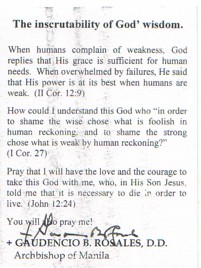 The inscrutability of God' wisdom.
When humans complain of weakness, God
replies that His grace is sufficient for human
needs. When overwhelmed by failures, He said
that His power is at its best when humans are
weak. (II Cor. 12:9)
How could I understand this God who "in order
to shame the wise chose what is foolish in
human reckoning, and to shame the strong
chose what is weak by human reckoning?"
(I Cor. 27)
Pray that I will have the love and the courage to
take this God with me, who, in His Son Jesus,
told me that it is necessary to die in order to
live. (John 12:24)
You will pray me!
+ GAUDENCIO B. ROSALES, D.D.
Archbishop of Manila